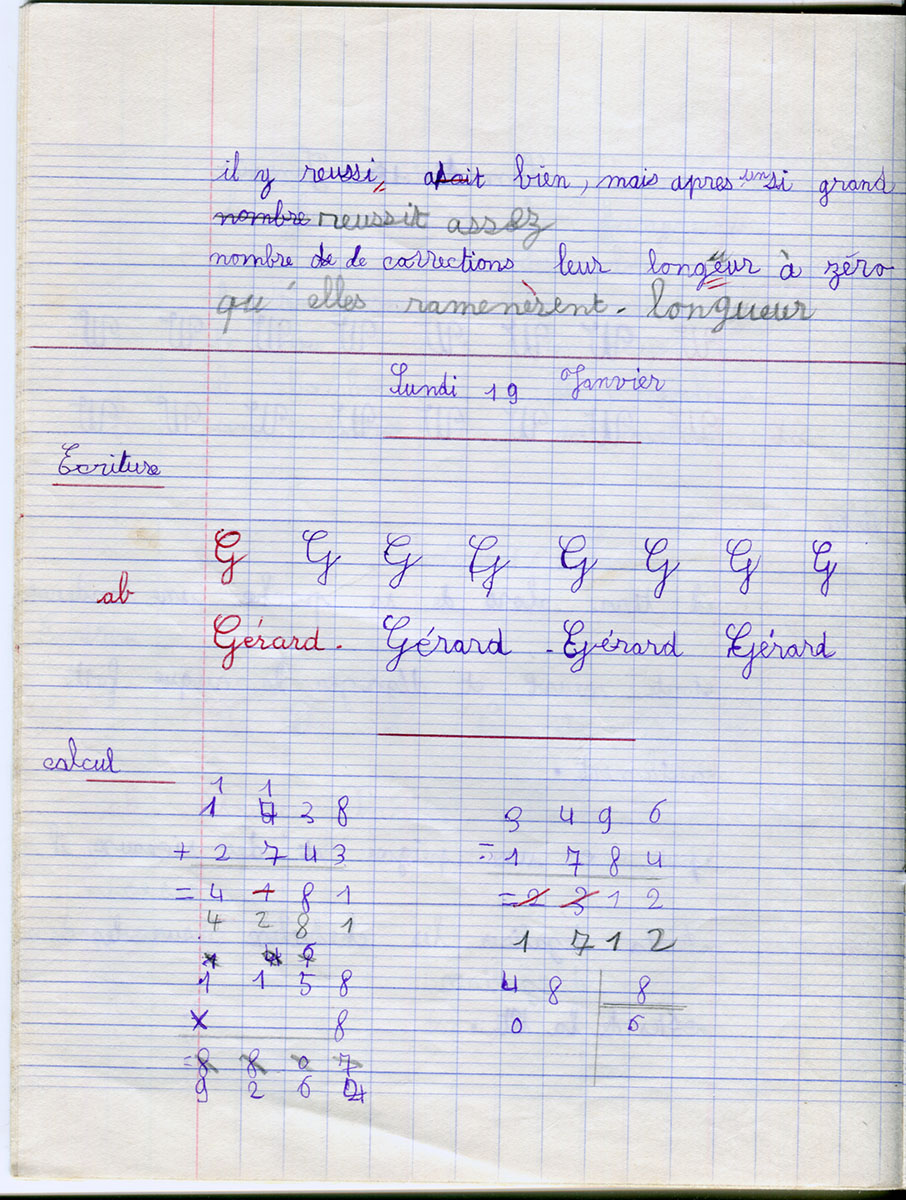 il y reussi, assait bien, mais apres un si grand
nombre reussit assez
nombre de de corrections leur longeur à zéro
qu'elles ramenèrent. longueur
Lundi 19 Janvier
Ecriture
G G G G G G G G
ab
Gérard. Gérard - Gérard Gérard
calcul
1 1
1 4 3 8
+ 2 7 4 3
= 4 1 8 1
4 2 8 1
3 4 9 6
- 1 7 8 4
= 2 3 1 2
1 7 1 2
1 4 6
1 1 5 8
× 8
= 8 8 0 7
9 2 6 4
4 8 8
0 6